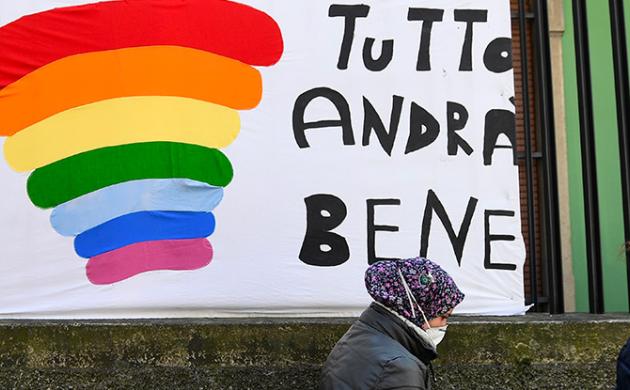 TUTTO
ANDRÀ
BENE